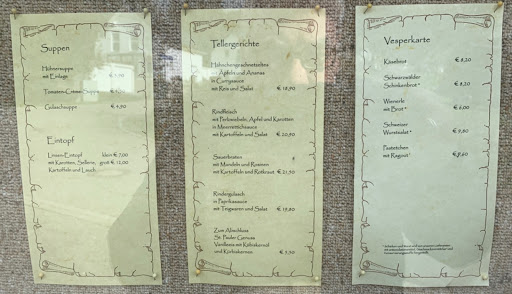 Suppen
Hühnersuppe
mit Einlage
Tomaten-Creme-Suppe
Gulaschsuppe € 4,50
Eintopf
Linsen-Eintopf klein € 7,00
mit Karotten, Sellerie, groß € 12,00
Kartoffeln und Lauch
Tellergerichte
Hähnchengeschnetzeltes
in Äpfeln und Ananas
in Currysauce
mit Reis und Salat € 18,90
Rindfleisch
mit Perlzwiebeln, Apfel und Karotten
in Meerrettichsauce
mit Kartoffeln und Salat € 20,50
Sauerbraten
mit Mandeln und Rosinen
mit Kartoffeln und Rotkraut € 21,50
Rindergulasch
in Paprikasauce
mit Teigwaren und Salat € 19,80
Zum Abschluss
Vanilleeis mit Kürbiskernöl
und Kürbiskernen € 5,50
Vesperkarte
Käsebrot € 8,20
Schwarzwälder
Schinkenbrot * € 8,20
Wienerle
mit Brot * € 6,00
Schweizer
Wurstsalat * € 9,80
Pastetchen
mit Ragout * € 8,60